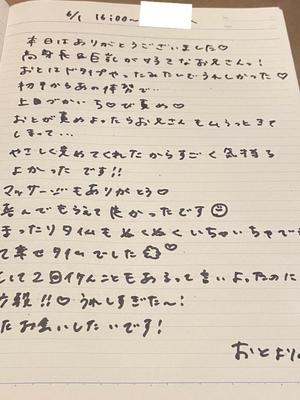 6/1 16:00~
本日はありがとうございました♡
高身長で巨乳がすきなお兄さんっ!
おとはドタイプやったみたいでうれしかった♡
初手からあの体勢で…
上目づかいち♡び責め♡
おとが責めよったらお兄さんもムラっときて
しまって…
やさしく責めてくれたからすごく気持ち
よかったです!!
マッサージもありがとう♡
喜んでもらえて良かったです☺
まったりタイムもぬくぬくいちゃいちゃでき
て幸せタイムでした ♡
して2回イクんこともあるって言いよったのに
!!♡うれしすぎた〜!
たお会いしたいです!
おとより